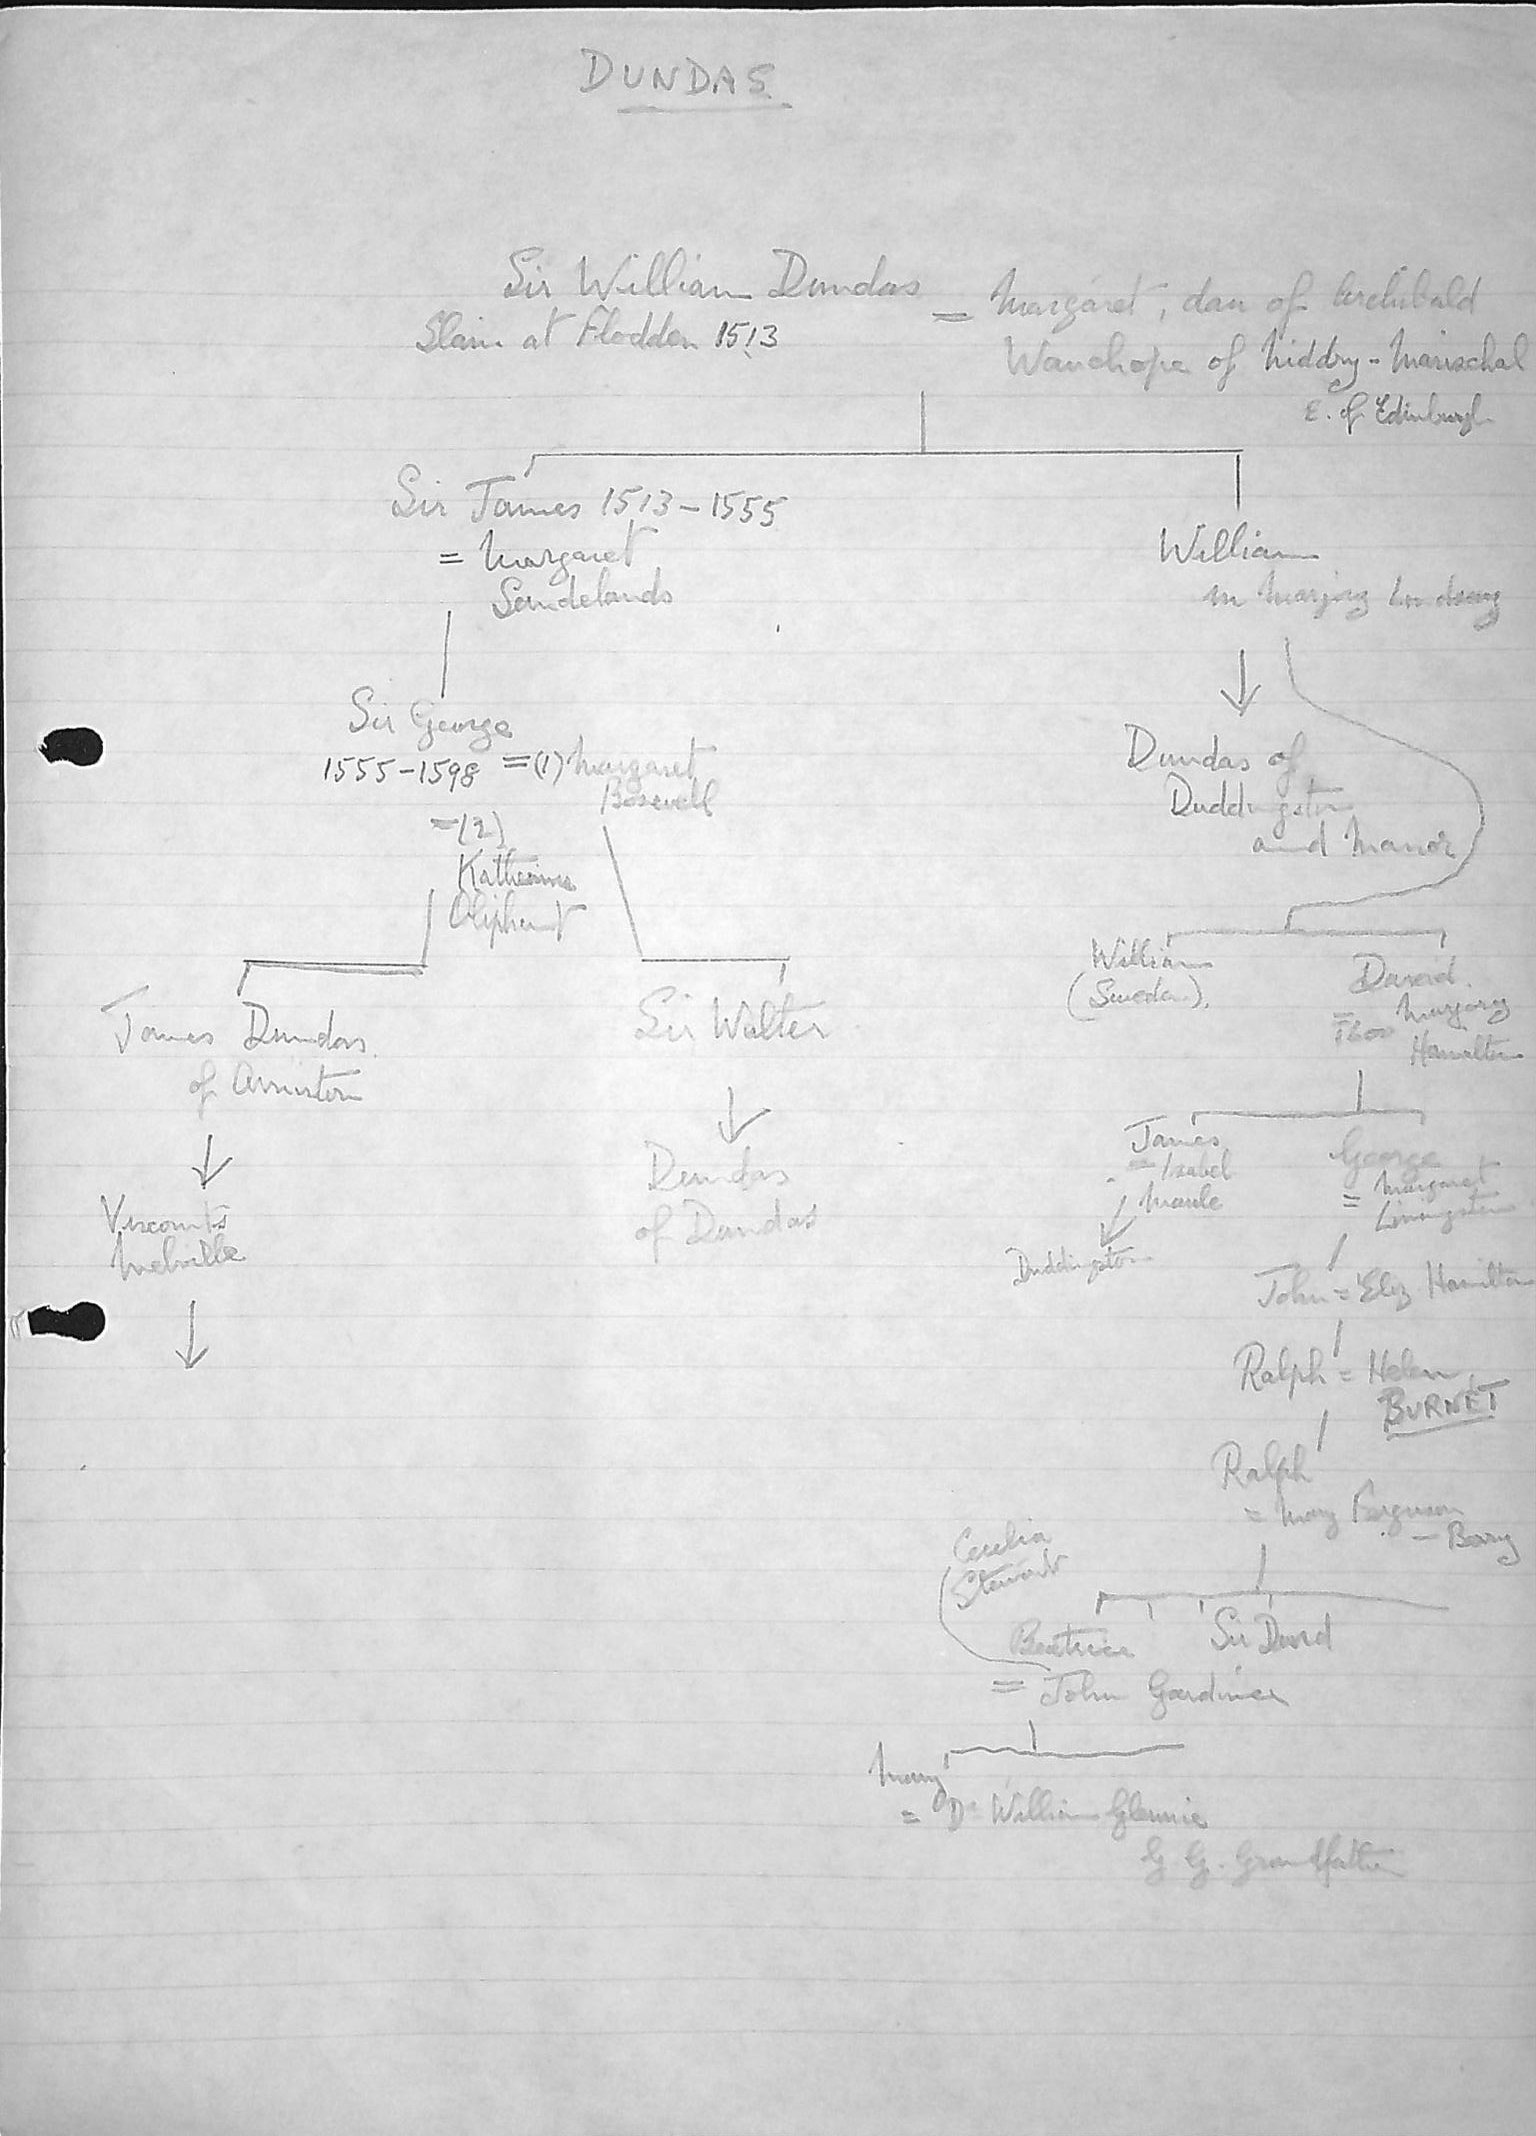 DUNDAS
Sir William Dundas
Slain at Flodden 1513
= Margaret, dau of Archibald
Wauchope of Niddry - Marischal
E. of Edinburgh
Sir James 1513 - 1555
= Margaret
Sandelands
William
m Marjory Lindsay
Sir George
1555 - 1598 = (1) Margaret
Boswell
= (2)
Katherine
Oliphant
Dundas of
Duddingston
and Manor
William
(Sweden).
David
= Marjory
1600
Hamilton
James Dundas
of Arniston
Sir Walter
Viscounts
Melville
Dundas
of Dundas
James
= Isabel
Maule
Duddingston
George
= Margaret
Livingston
John = Eliz Hamilton
Ralph = Helen
BURNET
Ralph
= Mary Ferguson
- Barry
Cecilia
Stewart
Beatrice
Sir David
= John Gardiner
Mary
= Dr William Glennie
G G. Grandfather